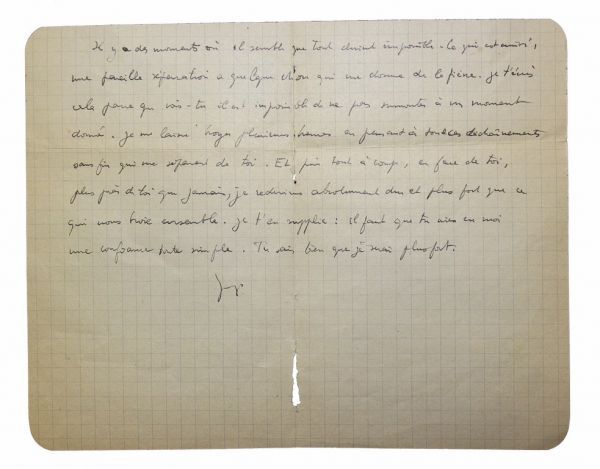 Il y a des moments où il semble que tout devient impossible. Ce qui est arrivé,
une pareille séparation a quelque chose qui me donne de la peine. Je t'écris
cela parce que vois-tu il est impossible de ne pas surmonter à un moment
donné. Je me laisse plusieurs heures en pensant à tous ces déchaînements
sans fin qui me séparent de toi. Et puis tout à coup, en face de toi,
plus près de toi que jamais, je redeviens absolument dur et plus fort que ce
qui nous broie ensemble. Je t'en supplie : il faut que tu aies en moi
une confiance toute simple. Tu sais bien que je serai plus fort.